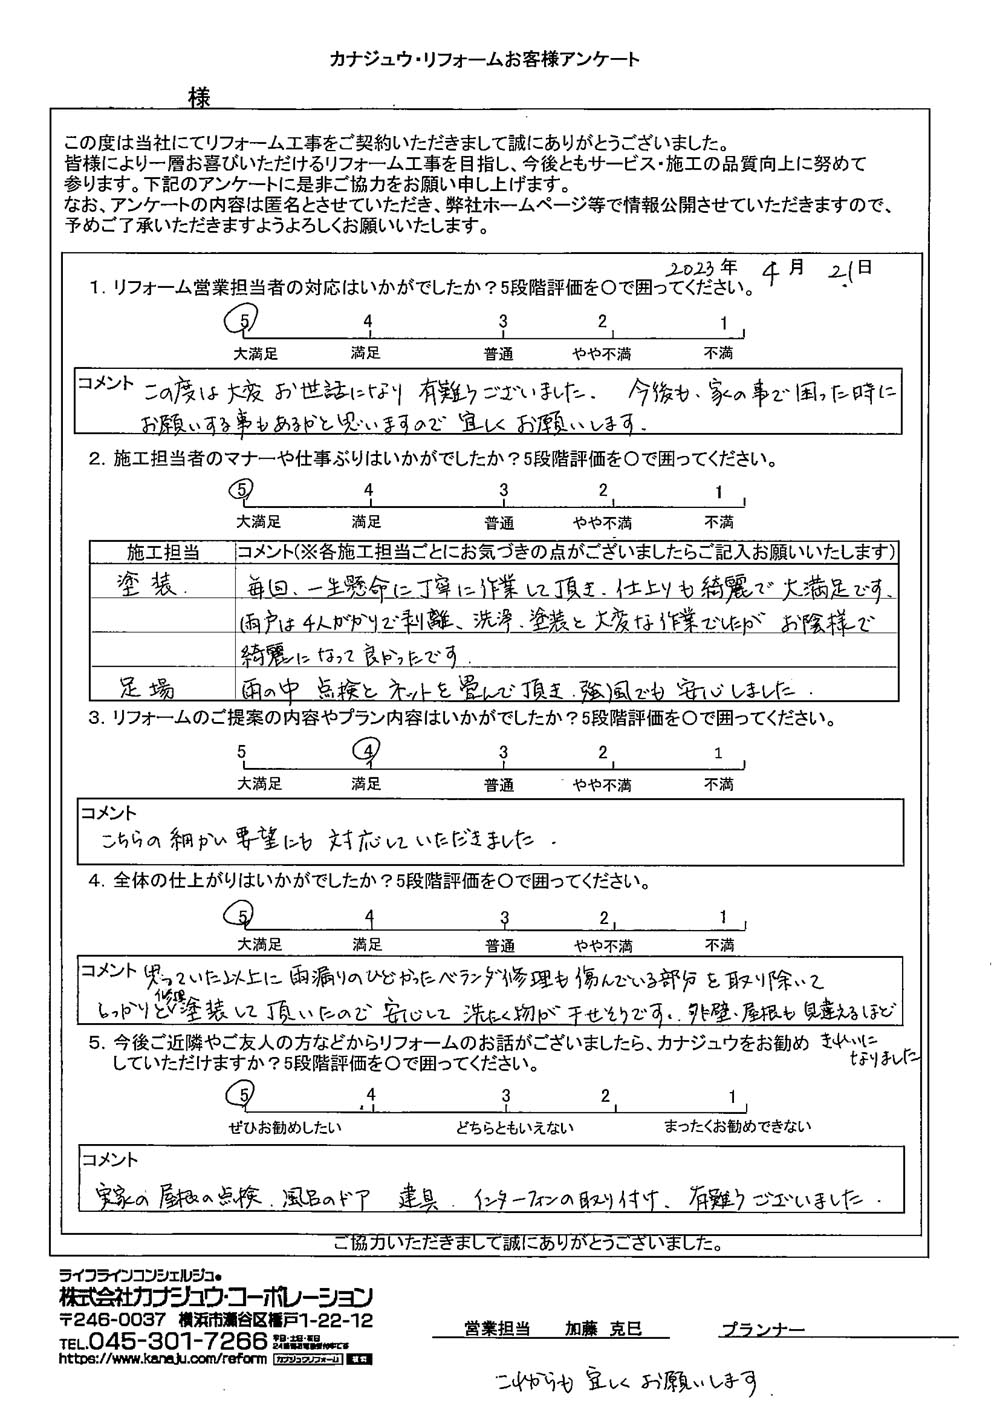 カナジュウ・リフォームお客様アンケート
様
この度は当社にてリフォーム工事をご契約いただきまして誠にありがとうございました。
皆様により一層お喜びいただけるリフォーム工事を目指し、今後ともサービス・施工の品質向上に努めて
参ります。下記のアンケートに是非ご協力をお願い申し上げます。
なお、アンケートの内容は匿名とさせていただき、弊社ホームページ等で情報公開させていただきますので、
予めご了承いただきますようよろしくお願いいたします。
2023年 4月 21日
1. リフォーム営業担当者の対応はいかがでしたか？5段階評価を〇で囲ってください。
5 4 3 2 1
大満足 満足 普通 やや不満 不満
コメント この度は大変お世話になり有難うございました. 今後も、家の事で困った時に
お願いする事もあるかと思いますので宜しくお願いします.
2. 施工担当者のマナーや仕事ぶりはいかがでしたか？5段階評価を〇で囲ってください。
5 4 3 2 1
大満足 満足 普通 やや不満 不満
施工担当 コメント(※各施工担当ごとにお気づきの点がございましたらご記入お願いいたします)
塗装. 毎回、一生懸命に丁寧に作業して頂き、仕上りも綺麗で大満足です、
雨戸は4人がかりで剥離、洗浄、塗装と大変な作業でしたがお陰様で
綺麗になって良かったです.
足場 雨の中 点検とネットを畳んで頂き、強風でも安心しました.
3. リフォームのご提案の内容やプラン内容はいかがでしたか？5段階評価を〇で囲ってください。
5 4 3 2 1
大満足 満足 普通 やや不満 不満
コメント
こちらの細かい要望にも対応していただきました.
4. 全体の仕上がりはいかがでしたか？5段階評価を〇で囲ってください。
5 4 3 2 1
大満足 満足 普通 やや不満 不満
コメント 思っていた以上に雨漏りのひどかったベランダ修理も傷んでいる部分を取り除いて
しっかりと修理塗装して頂いたので安心して洗たく物が干せそうです。外壁、屋根も見違えるほど
きれいになりました
5. 今後ご近隣やご友人の方などからリフォームのお話がございましたら、カナジュウをお勧め
していただけますか？5段階評価を〇で囲ってください。
5 4 3 2 1
ぜひお勧めしたい どちらともいえない まったくお勧めできない
コメント
実家の屋根の点検、風呂のドア 建具、インターフォンの取り付け、有難うございました.
ご協力いただきまして誠にありがとうございました。
ライフラインコンシェルジュ
株式会社カナジュウ・コーポレーション
〒246-0037 横浜市瀬谷区橋戸1-22-12
TEL.045-301-7266
https://www.kanaju.com/reform カナジュウリフォーム 検索
営業担当 加藤 克巳 プランナー
これからも宜しくお願いします.